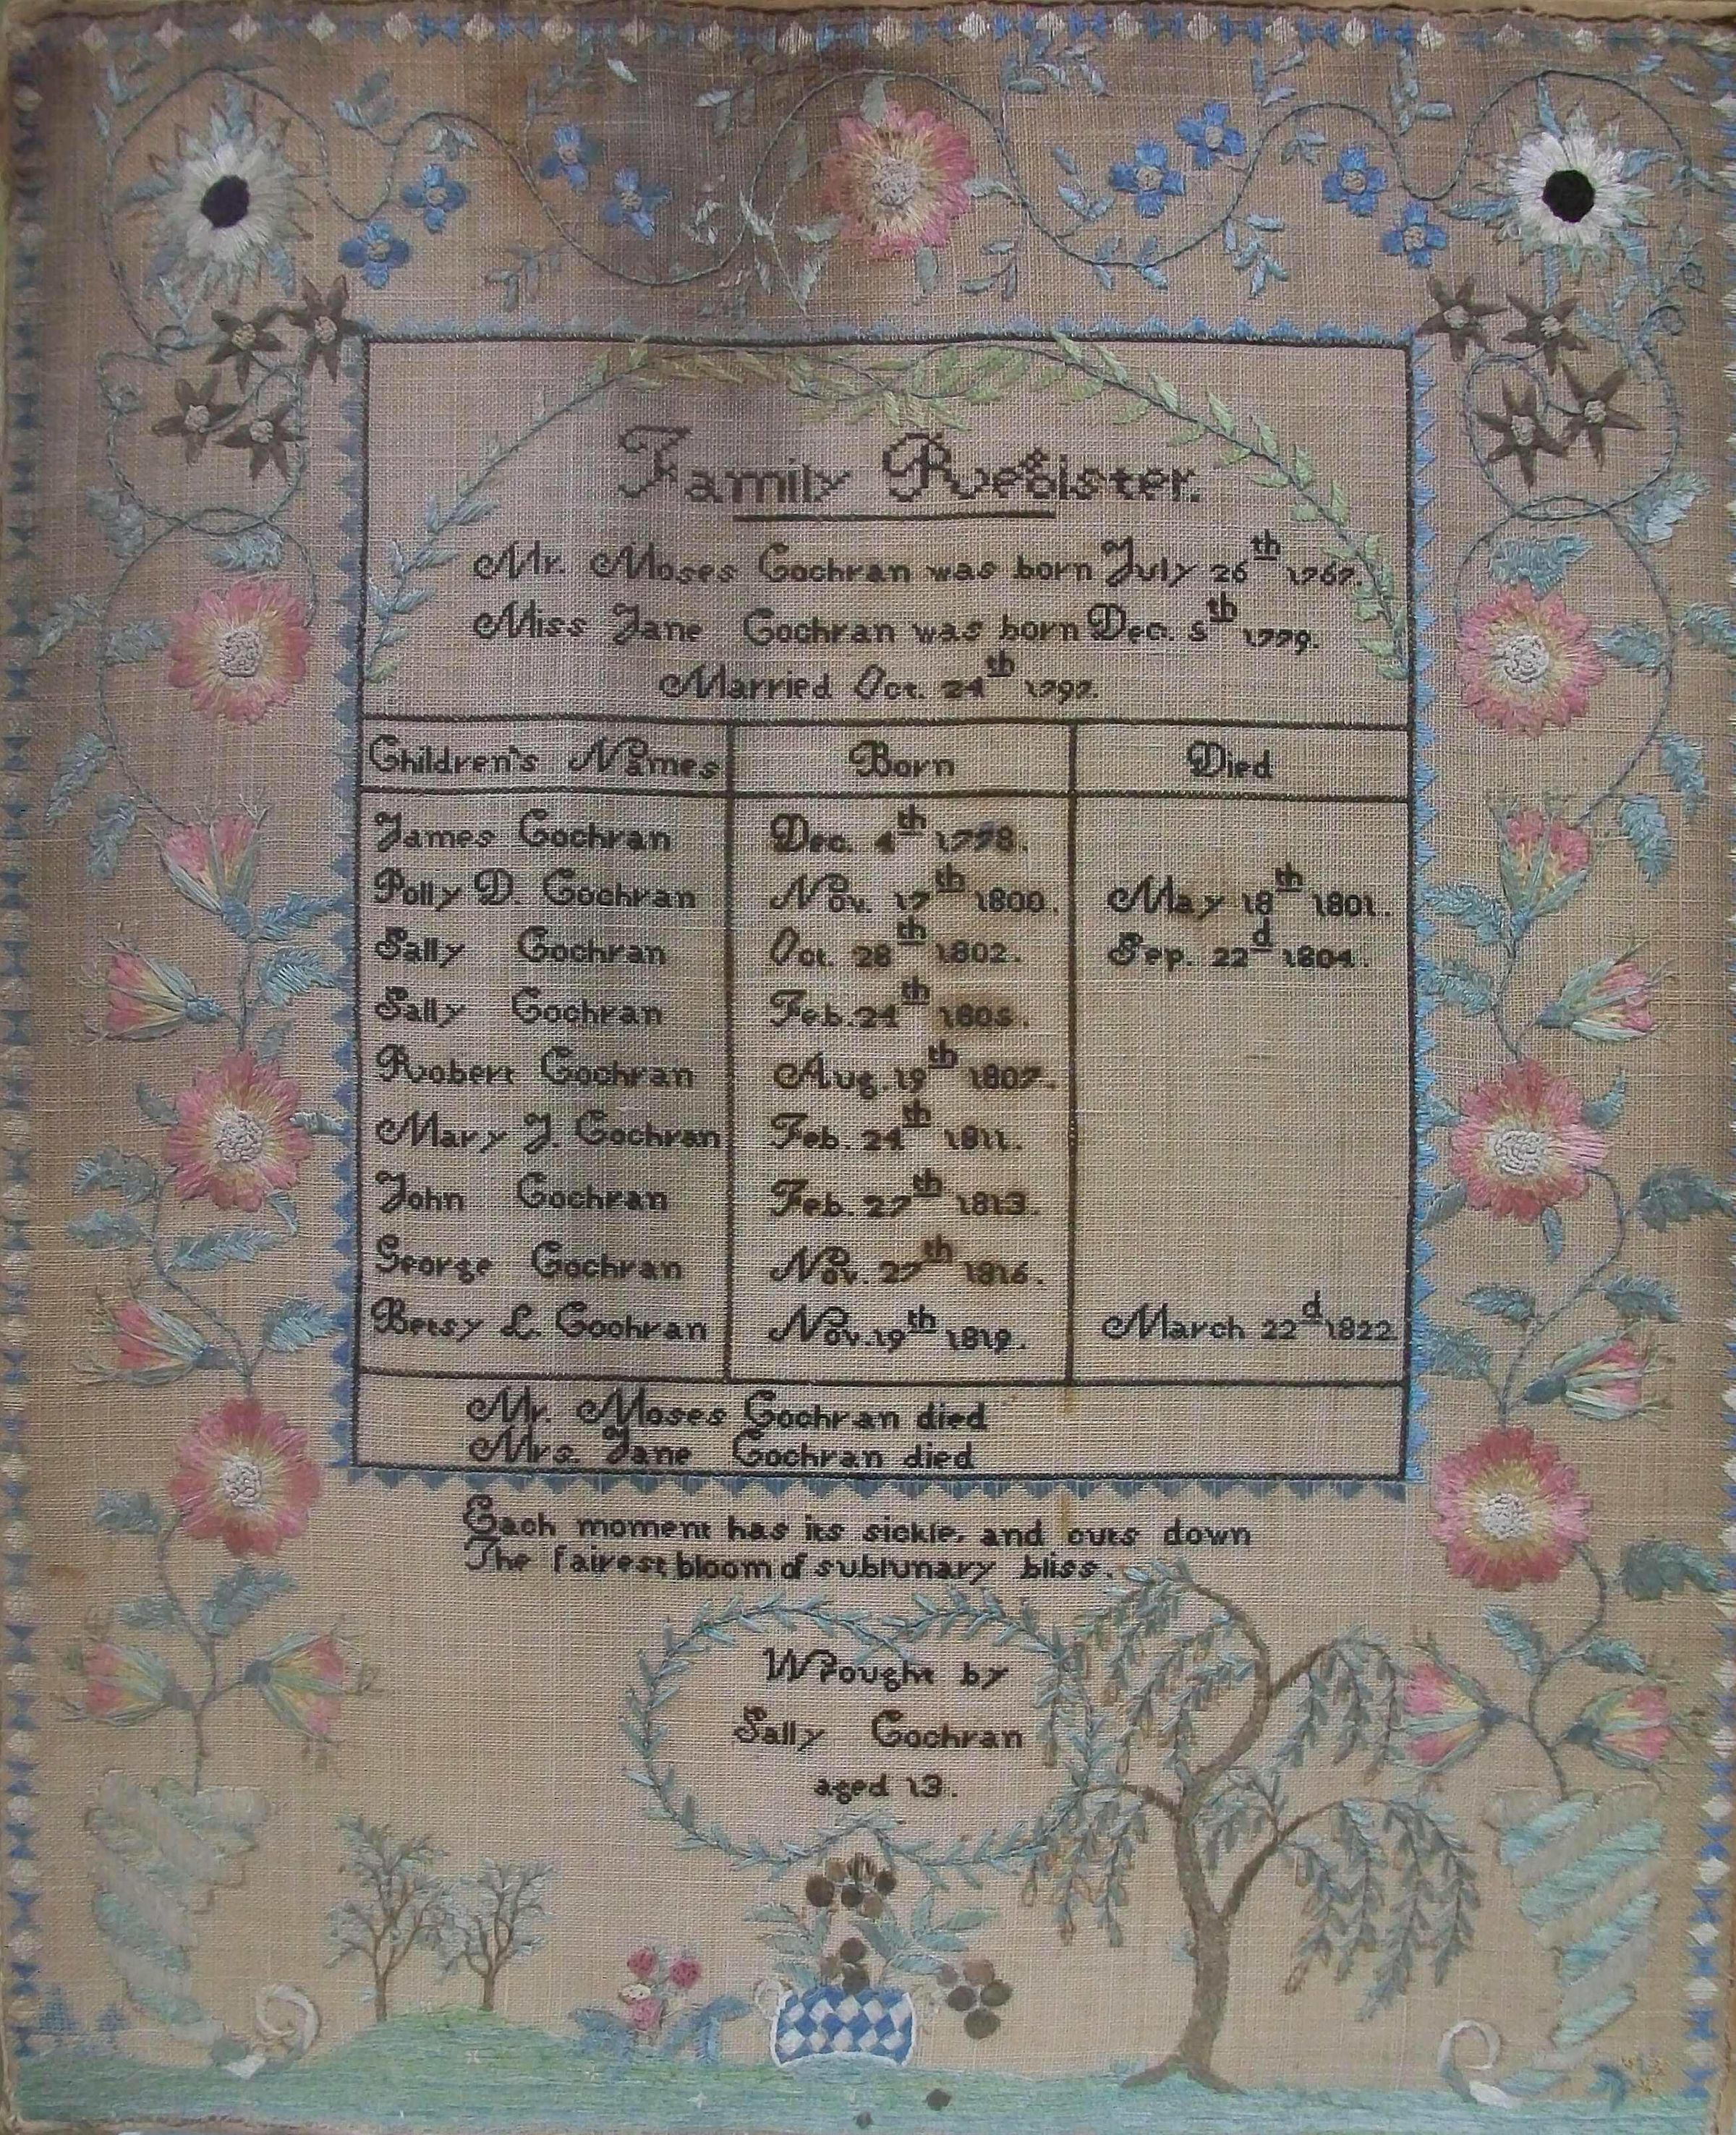 Family Register.
Mr. Moses Cochran was born July 26th 1767.
Miss Jane Cochran was born Dec. 5th 1779.
Married Oct. 24th 1797.
Children's Names Born Died
James Cochran Dec. 4th 1798.
Polly D. Cochran Nov. 17th 1800. May 18th 1801.
Sally Cochran Oct. 28th 1802. Sep. 22d 1804.
Sally Cochran Feb. 24th 1805.
Robert Cochran Aug. 19th 1807.
Mary J. Cochran Feb. 24th 1811.
John Cochran Feb. 27th 1813.
George Cochran Nov. 27th 1816.
Betsy L. Cochran Nov. 19th 1819. March 22d 1822
Mr. Moses Cochran died
Mrs. Jane Cochran died
Each moment has its sickle, and cuts down
The fairest bloom of sublunary bliss.
Wrought by
Sally Cochran
aged 13.